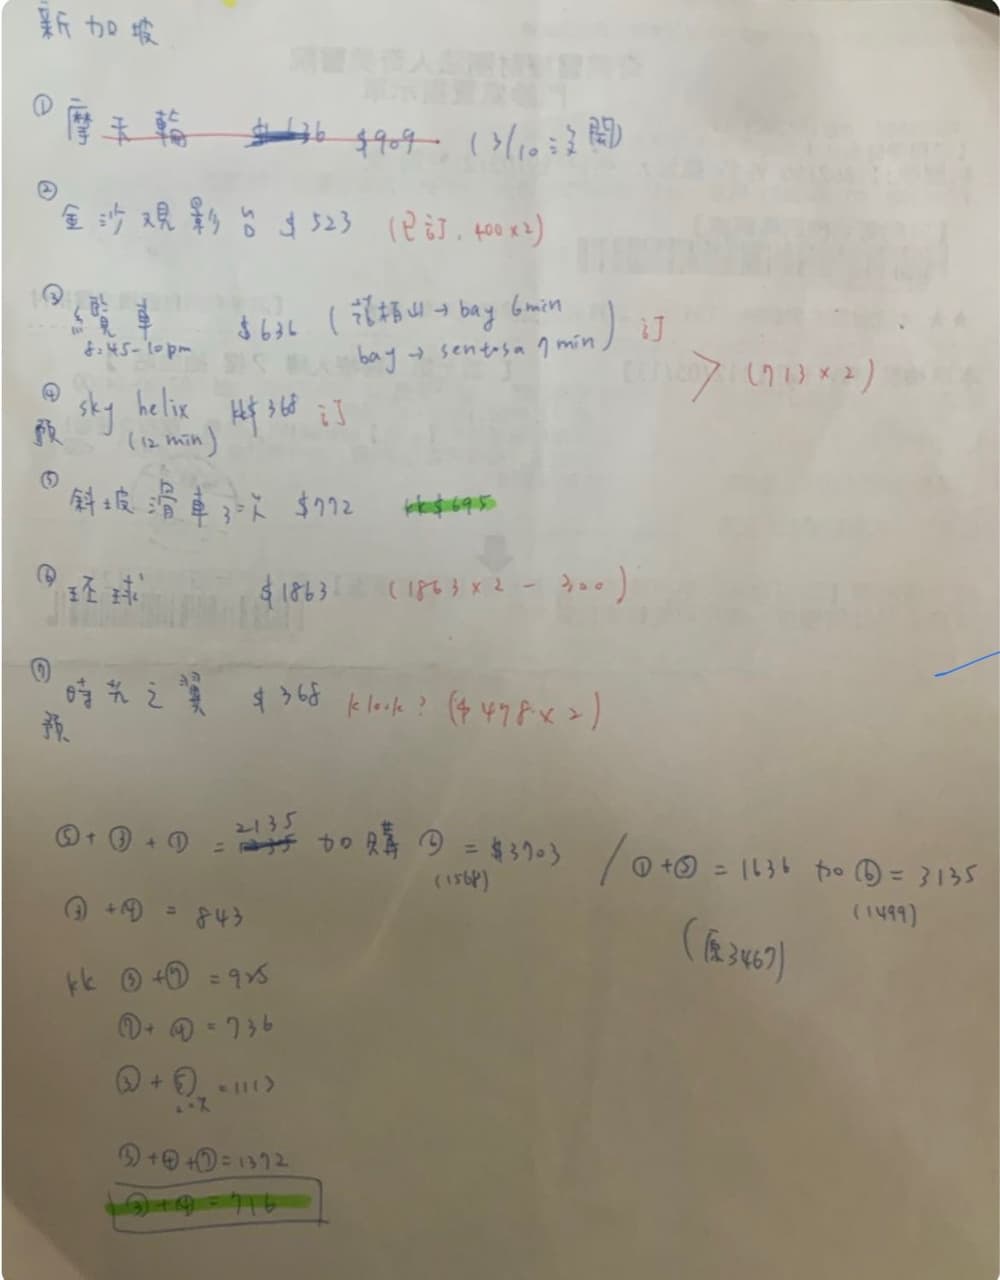 新加坡
① 摩天輪 $909 (3/10 沒開)
② 金沙观影台 $523 (已訂, 400×2)
③ 纜車 $636 (花柏山→bay 6min
8:45-10pm bay → sentosa 7min) 订
> (713×2)
④ sky helix kk$368 订
預 (12 min)
⑤ 斜坡滑車 3次 $772 kk$695
⑥ 环球 $1863 (1863×2-300)
⑦ 時光之翼 $368 klook? ($478×2)
預
⑤+③+① = 2135 加購 = $3703 / ①+⑤ = 1636 加⑥ = 3135
(1568) (1499)
③+④ = 843
(原3467)
kk ③+⑦ = 925
⑦+④ = 736
③+⑤ = 1113
③+④+⑦=1372
③+④=716